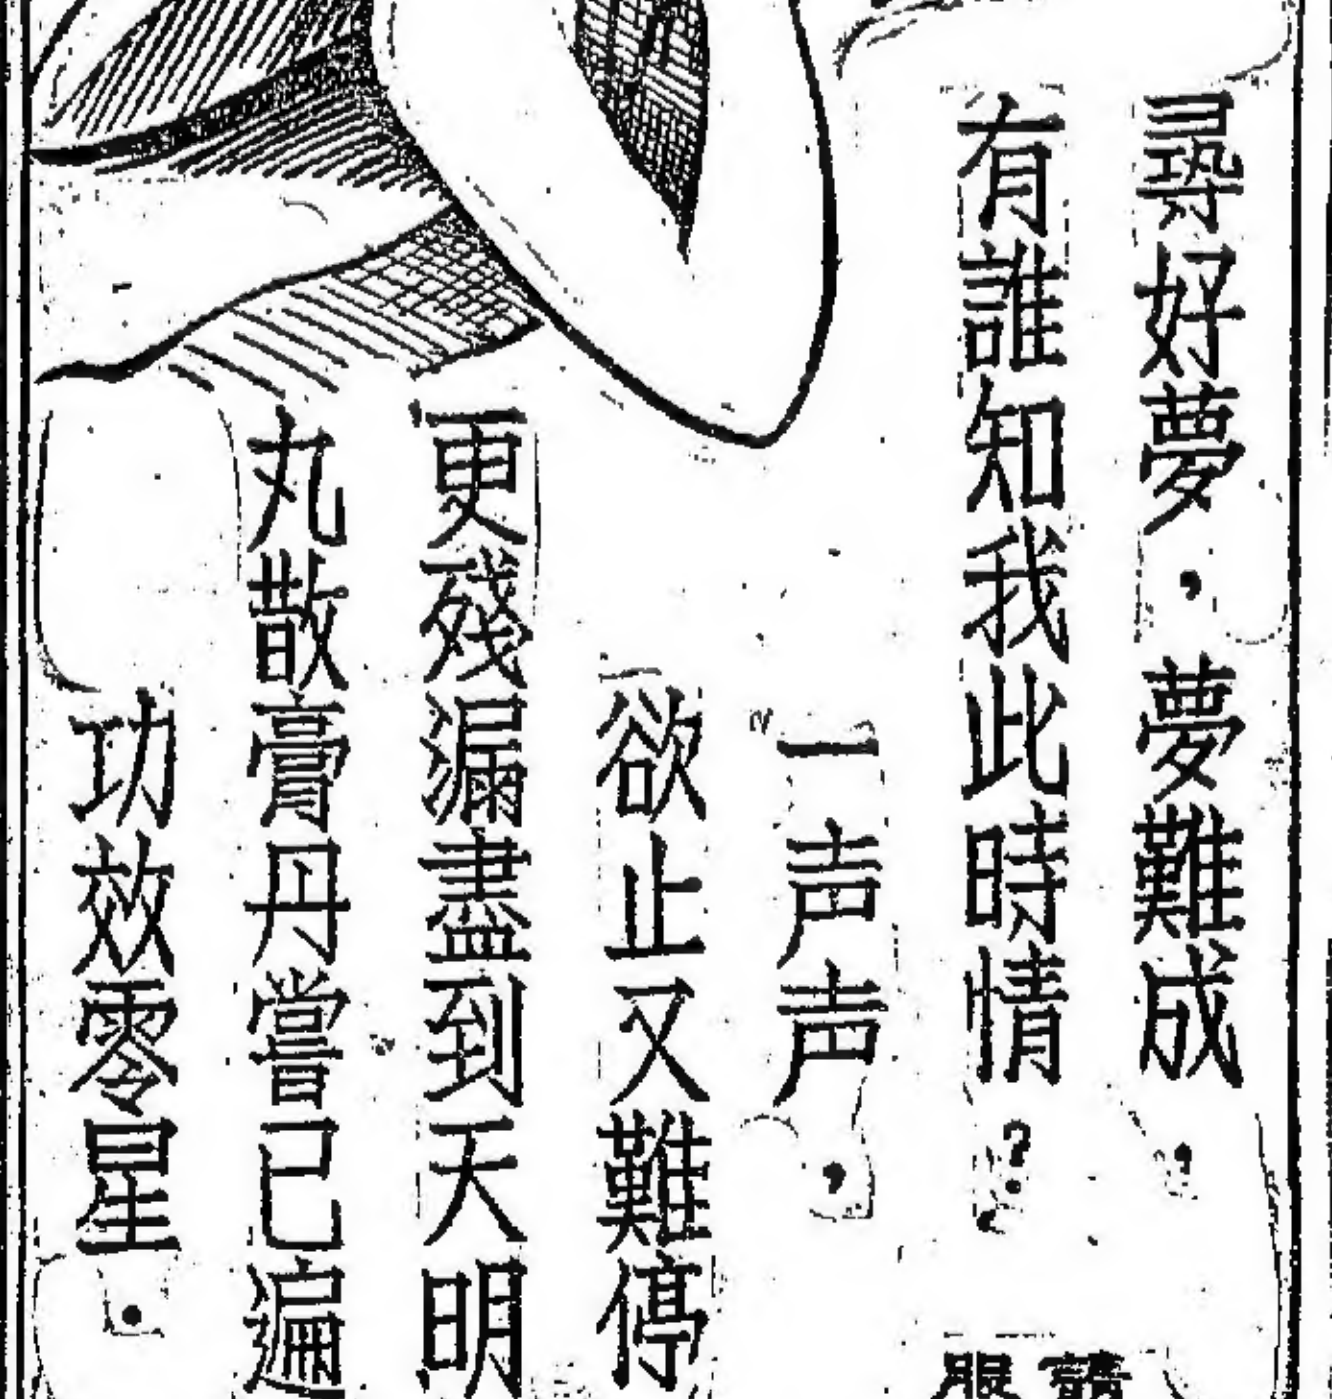 尋好夢，夢難成，
有誰知我此時情？
一声声，
欲止又難停
更殘漏盡到天明
丸散膏丹嘗已遍
功效零星．
請
服